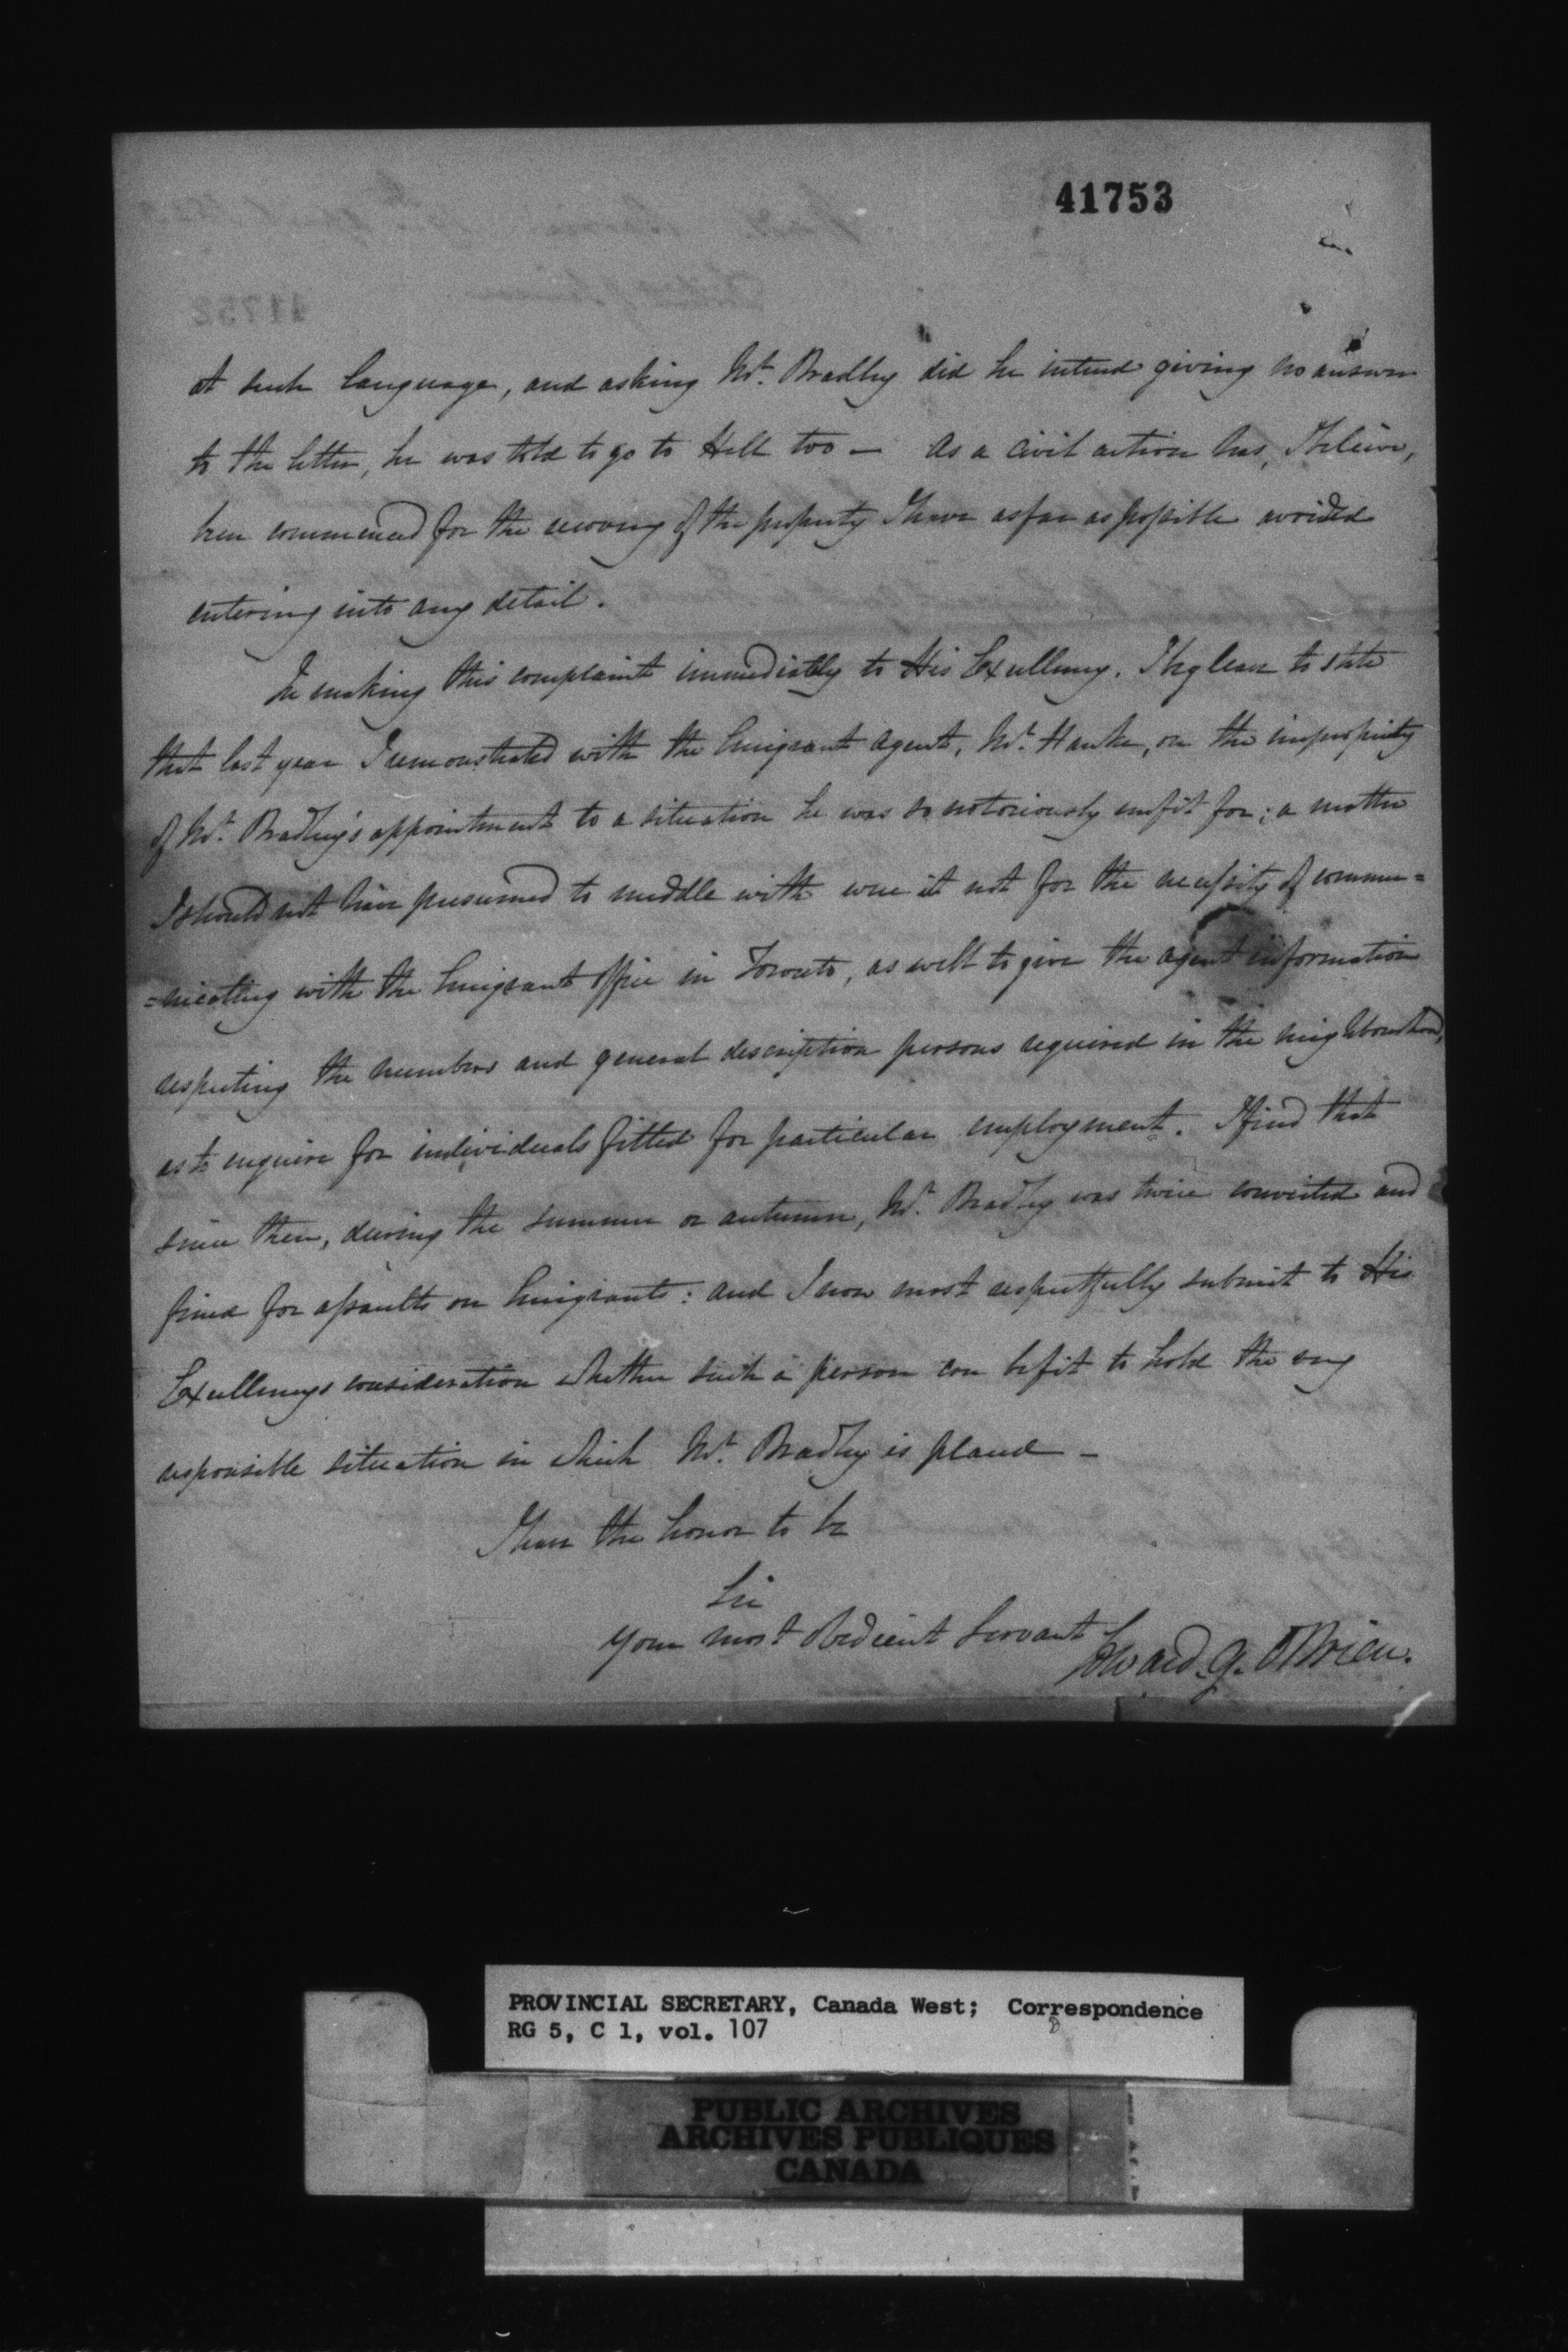 41753
at such language, and asking Mr. Bradley did he intend giving no answer
to the letter, he was told to go to Hell too — As a civil action has, I believe,
been commenced for the recovery of the property I have as far as possible avoided
entering into any detail.
In making this complaint immediately to His Excellency. I beg leave to state
that last year I remonstrated with the Emigrant agent, Mr. Hawke, on the impropriety
of Mr. Bradley's appointment to a situation he was so notoriously unfit for; a matter
I should not have presumed to meddle with were it not for the necessity of commu=
=nicating with the Emigrant Office in Toronto, as well to give the agent information
respecting the numbers and general description persons required in the neighbourhood,
as to enquire for individuals fitted for particular employment. I find that
since then, during the summer or autumn, Mr. Bradley was twice convicted and
fined for assaults on Emigrants: and I now most respectfully submit to His
Excellencys consideration whether such a person can be fit to hold the very
responsible situation in which Mr. Bradley is placed —
I have the honor to be
Sir
Your most obedient Servant
Edward. G. OBrien.
PROVINCIAL SECRETARY, Canada West; Correspondence
RG 5, C 1, vol. 107
PUBLIC ARCHIVES
ARCHIVES PUBLIQUES
CANADA